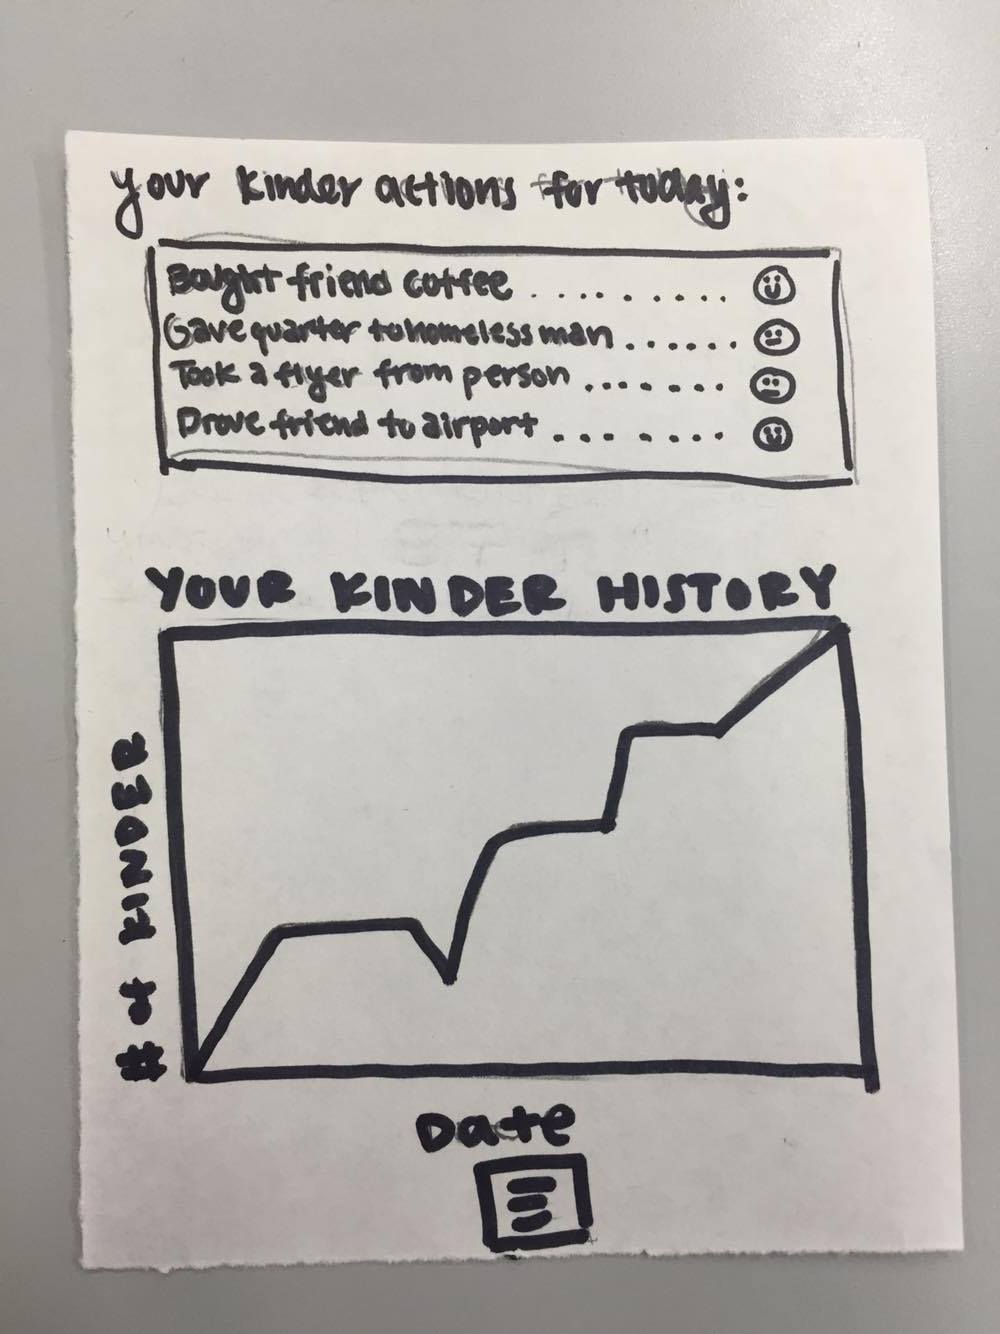 your kinder actions for today:
Bought friend coffee ........
Gave quarter to homeless man ......
Took a flyer from person .......
Drove friend to airport ........
YOUR KINDER HISTORY
# of KINDER
Date